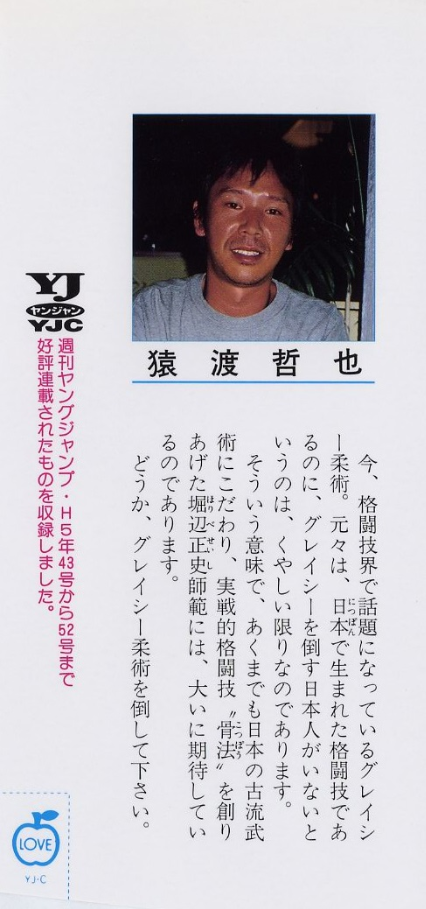 猿渡哲也
今、格闘技界で話題になっているグレイシ
ー柔術。元々は、日本で生まれた格闘技であ
るのに、グレイシーを倒す日本人がいないと
いうのは、くやしい限りなのであります。
そういう意味で、あくまでも日本の古流武
術にこだわり、実戦的格闘技〝骨法〟を創り
あげた堀辺正史師範には、大いに期待してい
るのであります。
どうか、グレイシー柔術を倒して下さい。
YJ
ヤンジャン
YJC
週刊ヤングジャンプ・H5年43号から52号まで
好評連載されたものを収録しました。
LOVE
YJ-C